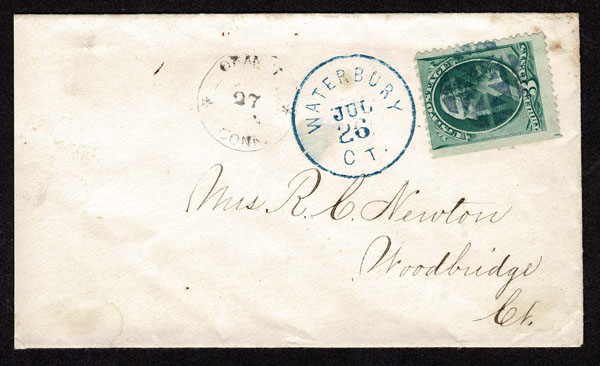 ORANGE
27
CONN
WATERBURY
JUL
26
CT.
U.S. POSTAGE
Mrs. R. C. Newton
Woodbridge
Ct.